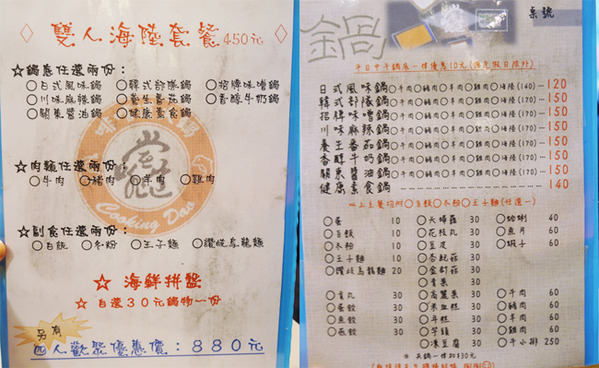 雙人海陸套餐 450元
☆鍋底任選兩份：
○日式風味鍋 ○韓式部隊鍋 ○招牌味噌鍋
○川味麻辣鍋 ○養生番茄鍋 ○香醇牛奶鍋
○關東醬油鍋 ○健康素食鍋
☆肉類任選兩份：
○牛肉 ○豬肉 ○羊肉 ○雞肉
Cooking Dao
☆副食任選兩份：
○白飯 ○冬粉 ○王子麵 ○讚岐烏龍麵
☆ 海鮮拼盤
☆ 自選30元鍋物一份
另有
四人歡聚優惠價：880元
鍋
桌號
平日中午鍋底一律優惠10元
日式風味鍋 ○牛肉○豬肉○羊肉○雞肉○海陸(140) 120
韓式部隊鍋 ○牛肉○豬肉○羊肉○雞肉○海陸(170) 150
招牌味噌鍋 ○牛肉○豬肉○羊肉○雞肉○海陸(170) 150
川味麻辣鍋 ○牛肉○豬肉○羊肉○雞肉○海陸(170) 150
養生番茄鍋 ○牛肉○豬肉○羊肉○雞肉○海陸(170) 150
香醇牛奶鍋 ○牛肉○豬肉○羊肉○雞肉○海陸(170) 150
關東醬油鍋 ○牛肉○豬肉○羊肉○雞肉○海陸(170) 150
健康素食鍋 140
以上主餐均附○白飯○冬粉○王子麵(任選一)
○蛋 10 ○大陸妹 30 ○蛤蜊 40
○白飯 10 ○花枝丸 30 ○魚片 60
○冬粉 10 ○豆皮 30 ○蝦子 60
○王子麵 10 ○杏鮑菇 30
○讚岐烏龍麵 20 ○金針菇 30
○青菜 30
○貢丸 30 ○高麗菜 30 ○牛肉 60
○蛋餃 30 ○米血糕 30 ○豬肉 60
○魚餃 30 ○芋糕 30 ○羊肉 60
○燕餃 30 ○芋頭 30 ○雞肉 60
○凍豆腐 30 ○牛小排 250